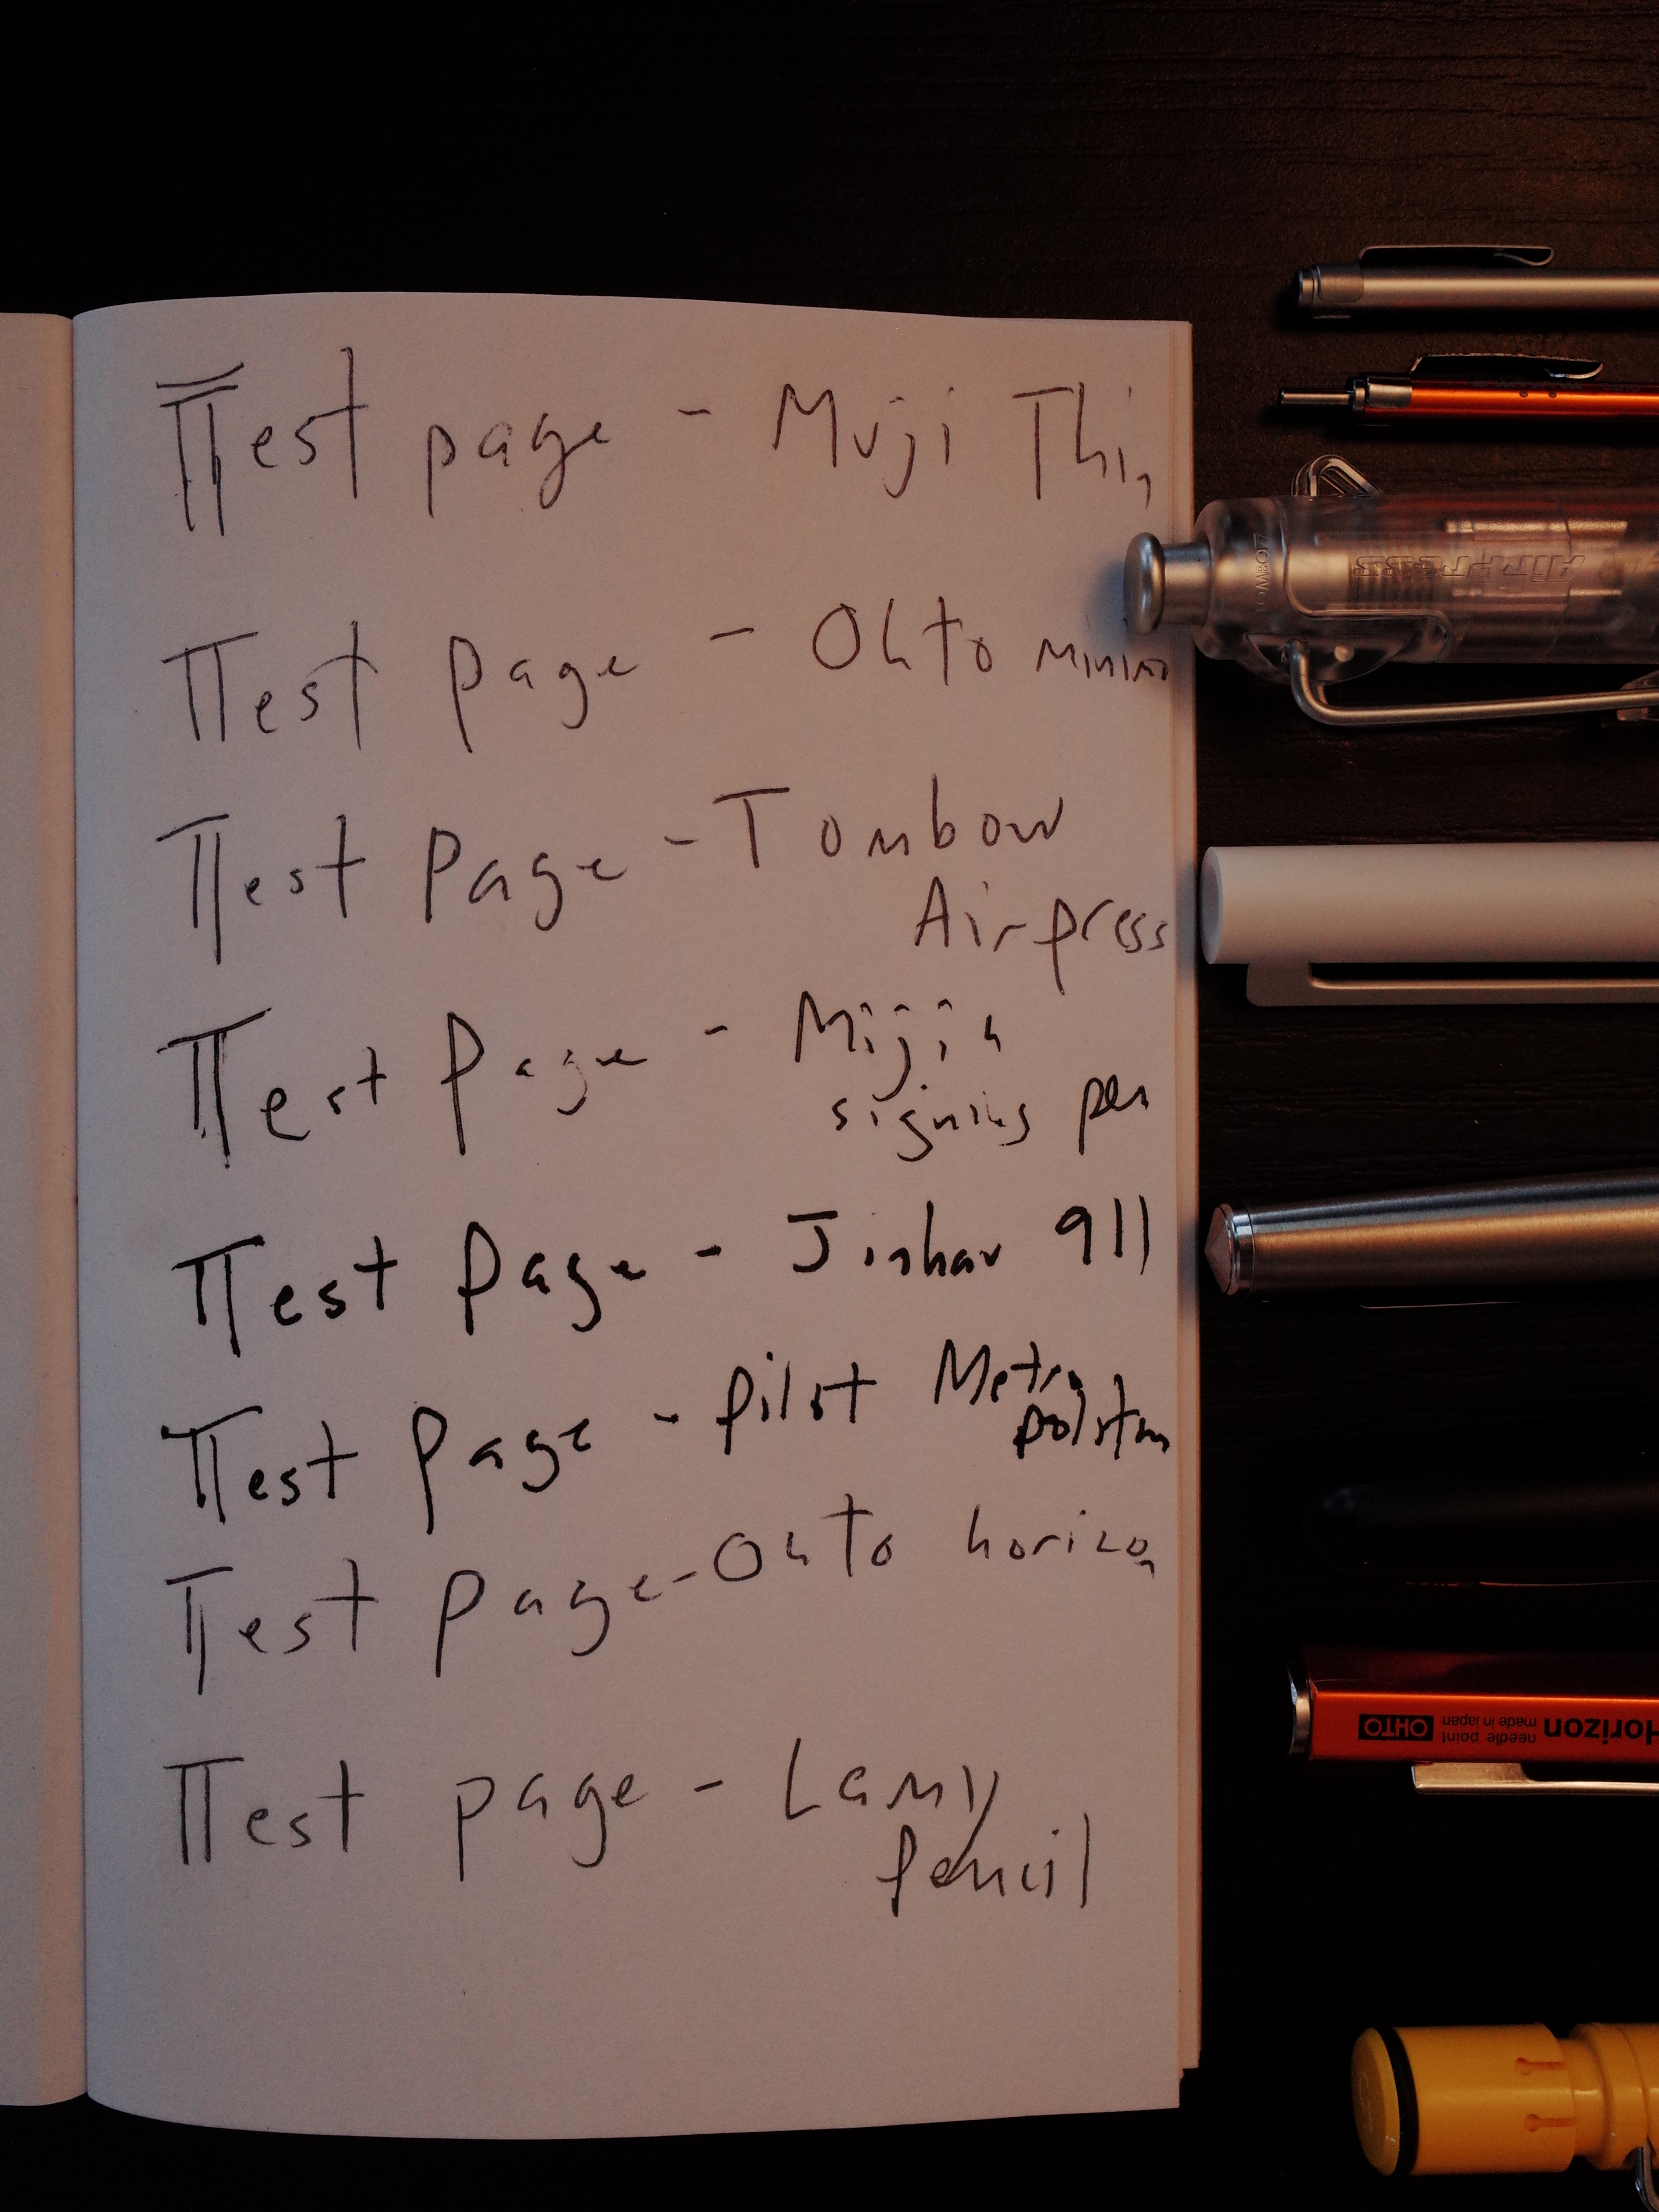 Test page - Muji Thin
Test page - Ohto minimo
Test Page - Tombow
Airpress
Test Page - Mijia
signing pen
Test Page - Jinhao 911
Test Page - Pilot Metro
politan
Test Page - Ohto horizon
Test page - Lamy
pencil
TOMBOW
AirPress
Horizon
needle point
made in japan
OHTO